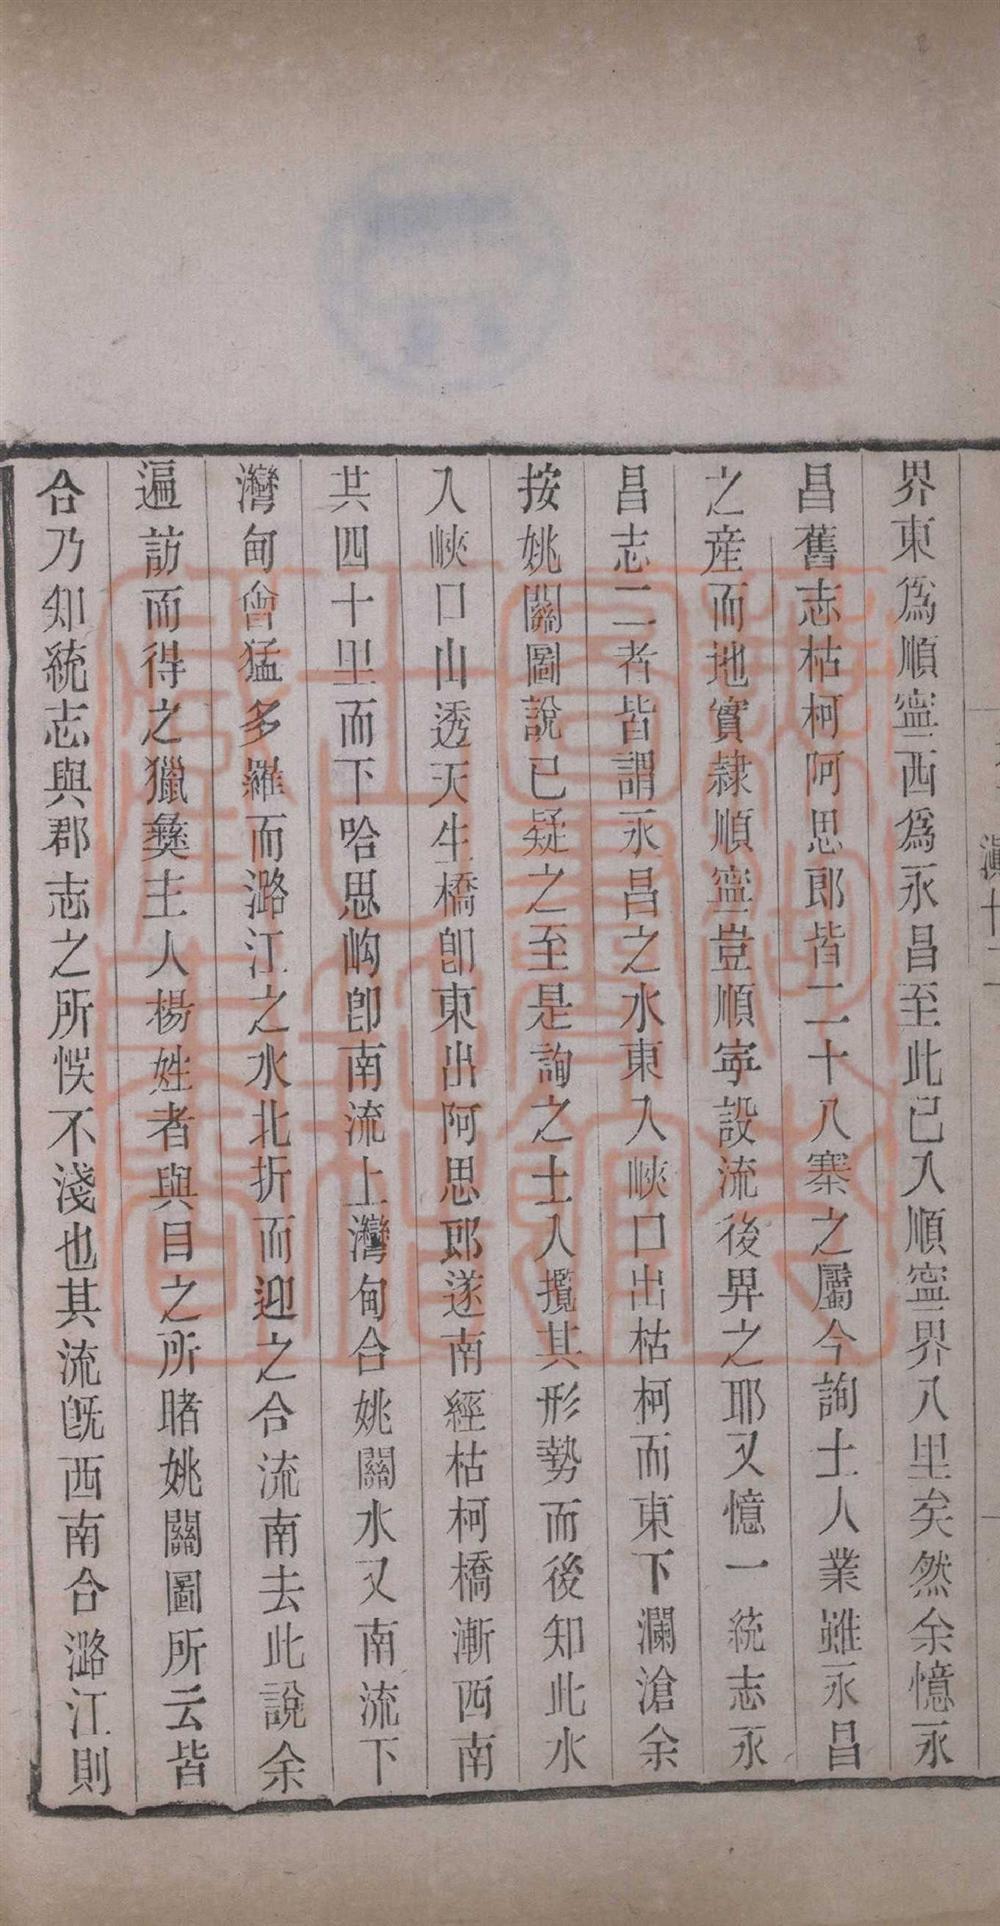 界東爲順寧西爲永昌至此已入順寧界八里矣然余憶永
昌舊志枯柯阿思郎皆二十八寨之屬今詢土人業雖永昌
之産而地實隷順寧豈順寧設流後畀之耶又憶一統志永
昌志二者皆謂永昌之水東入峽口出枯柯而東下瀾滄余
按姚關圖說已疑之至是詢之土人攬其形勢而後知此水
入峽口山透天生橋卽東出阿思郎遂南經枯柯橋漸西南
共四十里而下哈思坳卽南流上灣甸合姚關水又南流下
灣甸會猛多羅而潞江之水北折而迎之合流南去此說余
遍訪而得之獵彝主人楊姓者與目之所睹姚關圖所云皆
合乃知統志與郡志之所悞不淺也其流旣西南合潞江則
滇十二